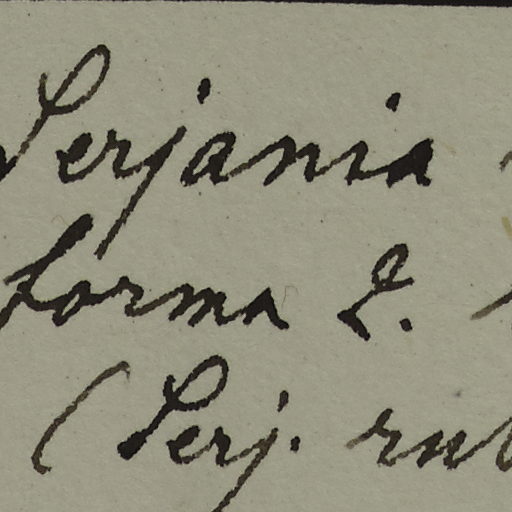 Serjania
forma 2.
(Serj. rub